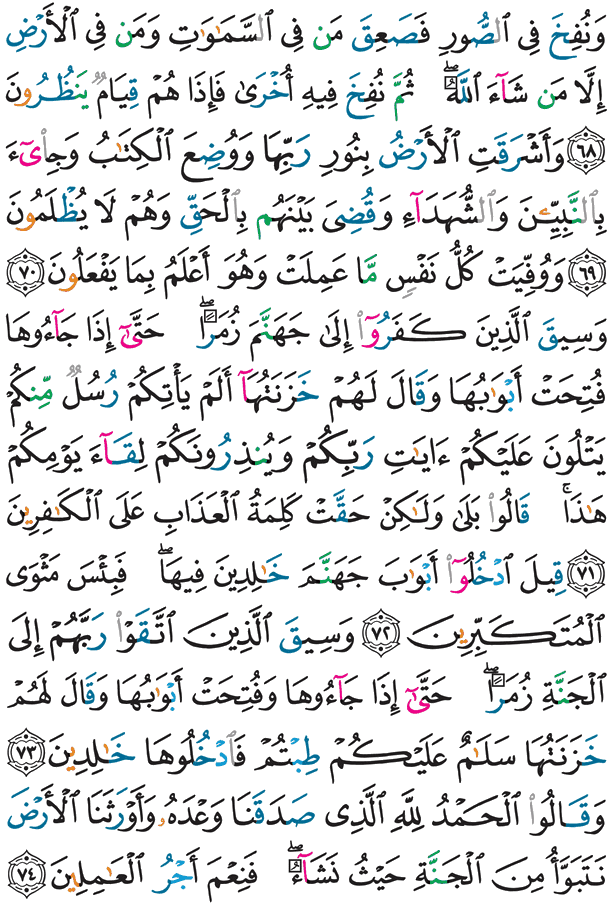 وَنُفِخَ فِي ٱلصُّورِ فَصَعِقَ مَن فِي ٱلسَّمَٰوَٰتِ وَمَن فِي ٱلْأَرْضِ
إِلَّا مَن شَآءَ ٱللَّهُ ۖ ثُمَّ نُفِخَ فِيهِ أُخْرَىٰ فَإِذَا هُمْ قِيَامٌ يَنظُرُونَ
﴿٦٨﴾ وَأَشْرَقَتِ ٱلْأَرْضُ بِنُورِ رَبِّهَا وَوُضِعَ ٱلْكِتَٰبُ وَجِا۟ىٓءَ
بِٱلنَّبِيِّـۧنَ وَٱلشُّهَدَآءِ وَقُضِىَ بَيْنَهُم بِٱلْحَقِّ وَهُمْ لَا يُظْلَمُونَ
﴿٦٩﴾ وَوُفِّيَتْ كُلُّ نَفْسٍ مَّا عَمِلَتْ وَهُوَ أَعْلَمُ بِمَا يَفْعَلُونَ ﴿٧٠﴾
وَسِيقَ ٱلَّذِينَ كَفَرُوٓا۟ إِلَىٰ جَهَنَّمَ زُمَرًا ۖ حَتَّىٰٓ إِذَا جَآءُوهَا
فُتِحَتْ أَبْوَٰبُهَا وَقَالَ لَهُمْ خَزَنَتُهَآ أَلَمْ يَأْتِكُمْ رُسُلٌ مِّنكُمْ
يَتْلُونَ عَلَيْكُمْ ءَايَٰتِ رَبِّكُمْ وَيُنذِرُونَكُمْ لِقَآءَ يَوْمِكُمْ
هَٰذَا ۚ قَالُوا۟ بَلَىٰ وَلَٰكِنْ حَقَّتْ كَلِمَةُ ٱلْعَذَابِ عَلَى ٱلْكَٰفِرِينَ
﴿٧١﴾ قِيلَ ٱدْخُلُوٓا۟ أَبْوَٰبَ جَهَنَّمَ خَٰلِدِينَ فِيهَا ۖ فَبِئْسَ مَثْوَى
ٱلْمُتَكَبِّرِينَ ﴿٧٢﴾ وَسِيقَ ٱلَّذِينَ ٱتَّقَوْا۟ رَبَّهُمْ إِلَى
ٱلْجَنَّةِ زُمَرًا ۖ حَتَّىٰٓ إِذَا جَآءُوهَا وَفُتِحَتْ أَبْوَٰبُهَا وَقَالَ لَهُمْ
خَزَنَتُهَا سَلَٰمٌ عَلَيْكُمْ طِبْتُمْ فَٱدْخُلُوهَا خَٰلِدِينَ ﴿٧٣﴾
وَقَالُوا۟ ٱلْحَمْدُ لِلَّهِ ٱلَّذِى صَدَقَنَا وَعْدَهُۥ وَأَوْرَثَنَا ٱلْأَرْضَ
نَتَبَوَّأُ مِنَ ٱلْجَنَّةِ حَيْثُ نَشَآءُ ۖ فَنِعْمَ أَجْرُ ٱلْعَٰمِلِينَ ﴿٧٤﴾